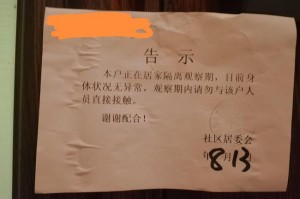 告示
本户正在居家隔离观察期，目前身
体状况无异常，观察期内请勿与该户人
员直接接触。
谢谢配合！
社区居委会
年8月13日